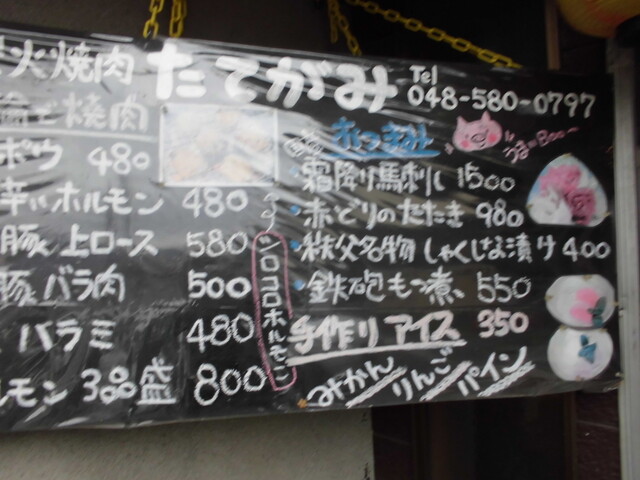 火焼肉 たてがみ Tel 048-580-0797
焼肉
ポウ 480
辛いホルモン 480
豚上ロース 580
豚バラ肉 500
バラミ 480
ルモン3品盛 800
シロコロホルモン
おつまみ
うま~Boo~
霜降り馬刺し 1500
赤どりのたたき 980
秩父名物しゃくしな漬け 400
鉄砲もつ煮 550
手作りアイス 350
みかん りんご パイン